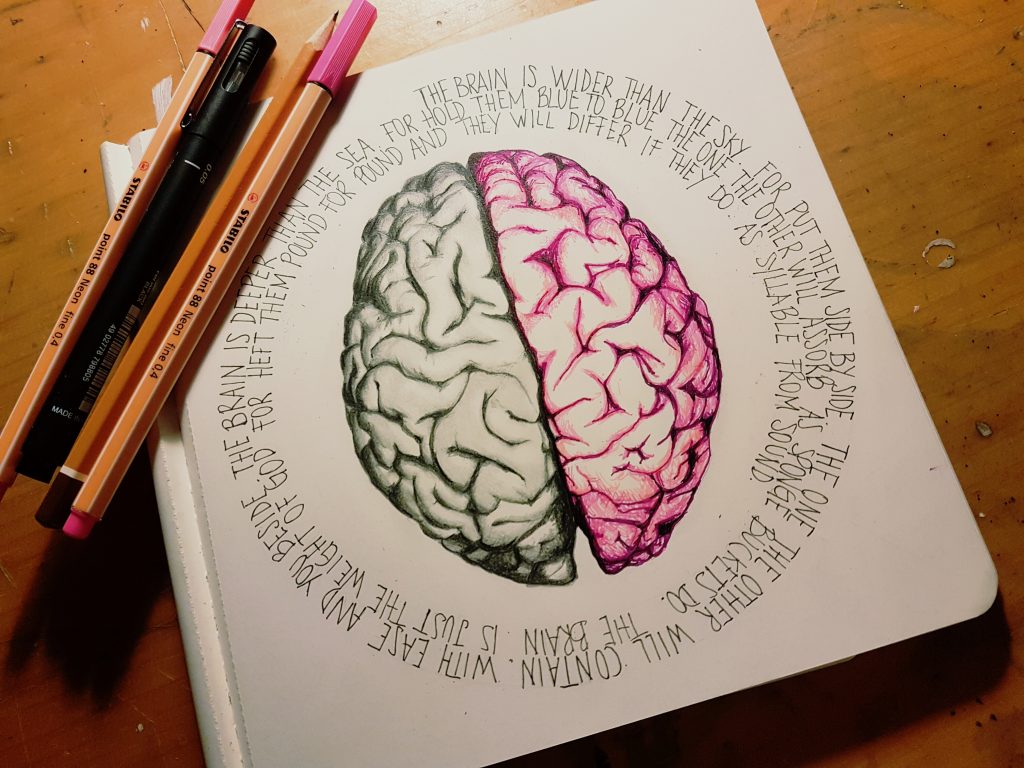 THE BRAIN IS WIDER THAN THE SKY FOR PUT THEM SIDE BY SIDE THE ONE THE OTHER WILL CONTAIN. WITH EASE AND YOU BESIDE THE BRAIN IS DEEPER THAN THE SEA FOR HOLD THEM BLUE TO BLUE THE ONE THE OTHER WILL ASSORB AS SPONGE BUCKETS DO. THE BRAIN IS JUST THE WEIGHT OF GOD FOR HEFT THEM POUND FOR POUND AND THEY WILL DIFFER IF THEY DO AS SYLLABLE FROM SOUND.
STABILO point 88 Neon fine 0.4
0.05
BLACK
49 02778 798805
MADE IN
STABILO point 88 Neon fine 0.4